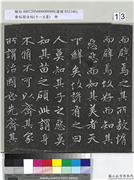 13
而辟焉之其所敖惰
而辟焉故好而知其
惡惡而知其美者天
下鮮矣故諺有之曰
人莫知其子之惡莫
知其苗之碩此謂身
不脩不可以齊其家
所謂治國必先齊其